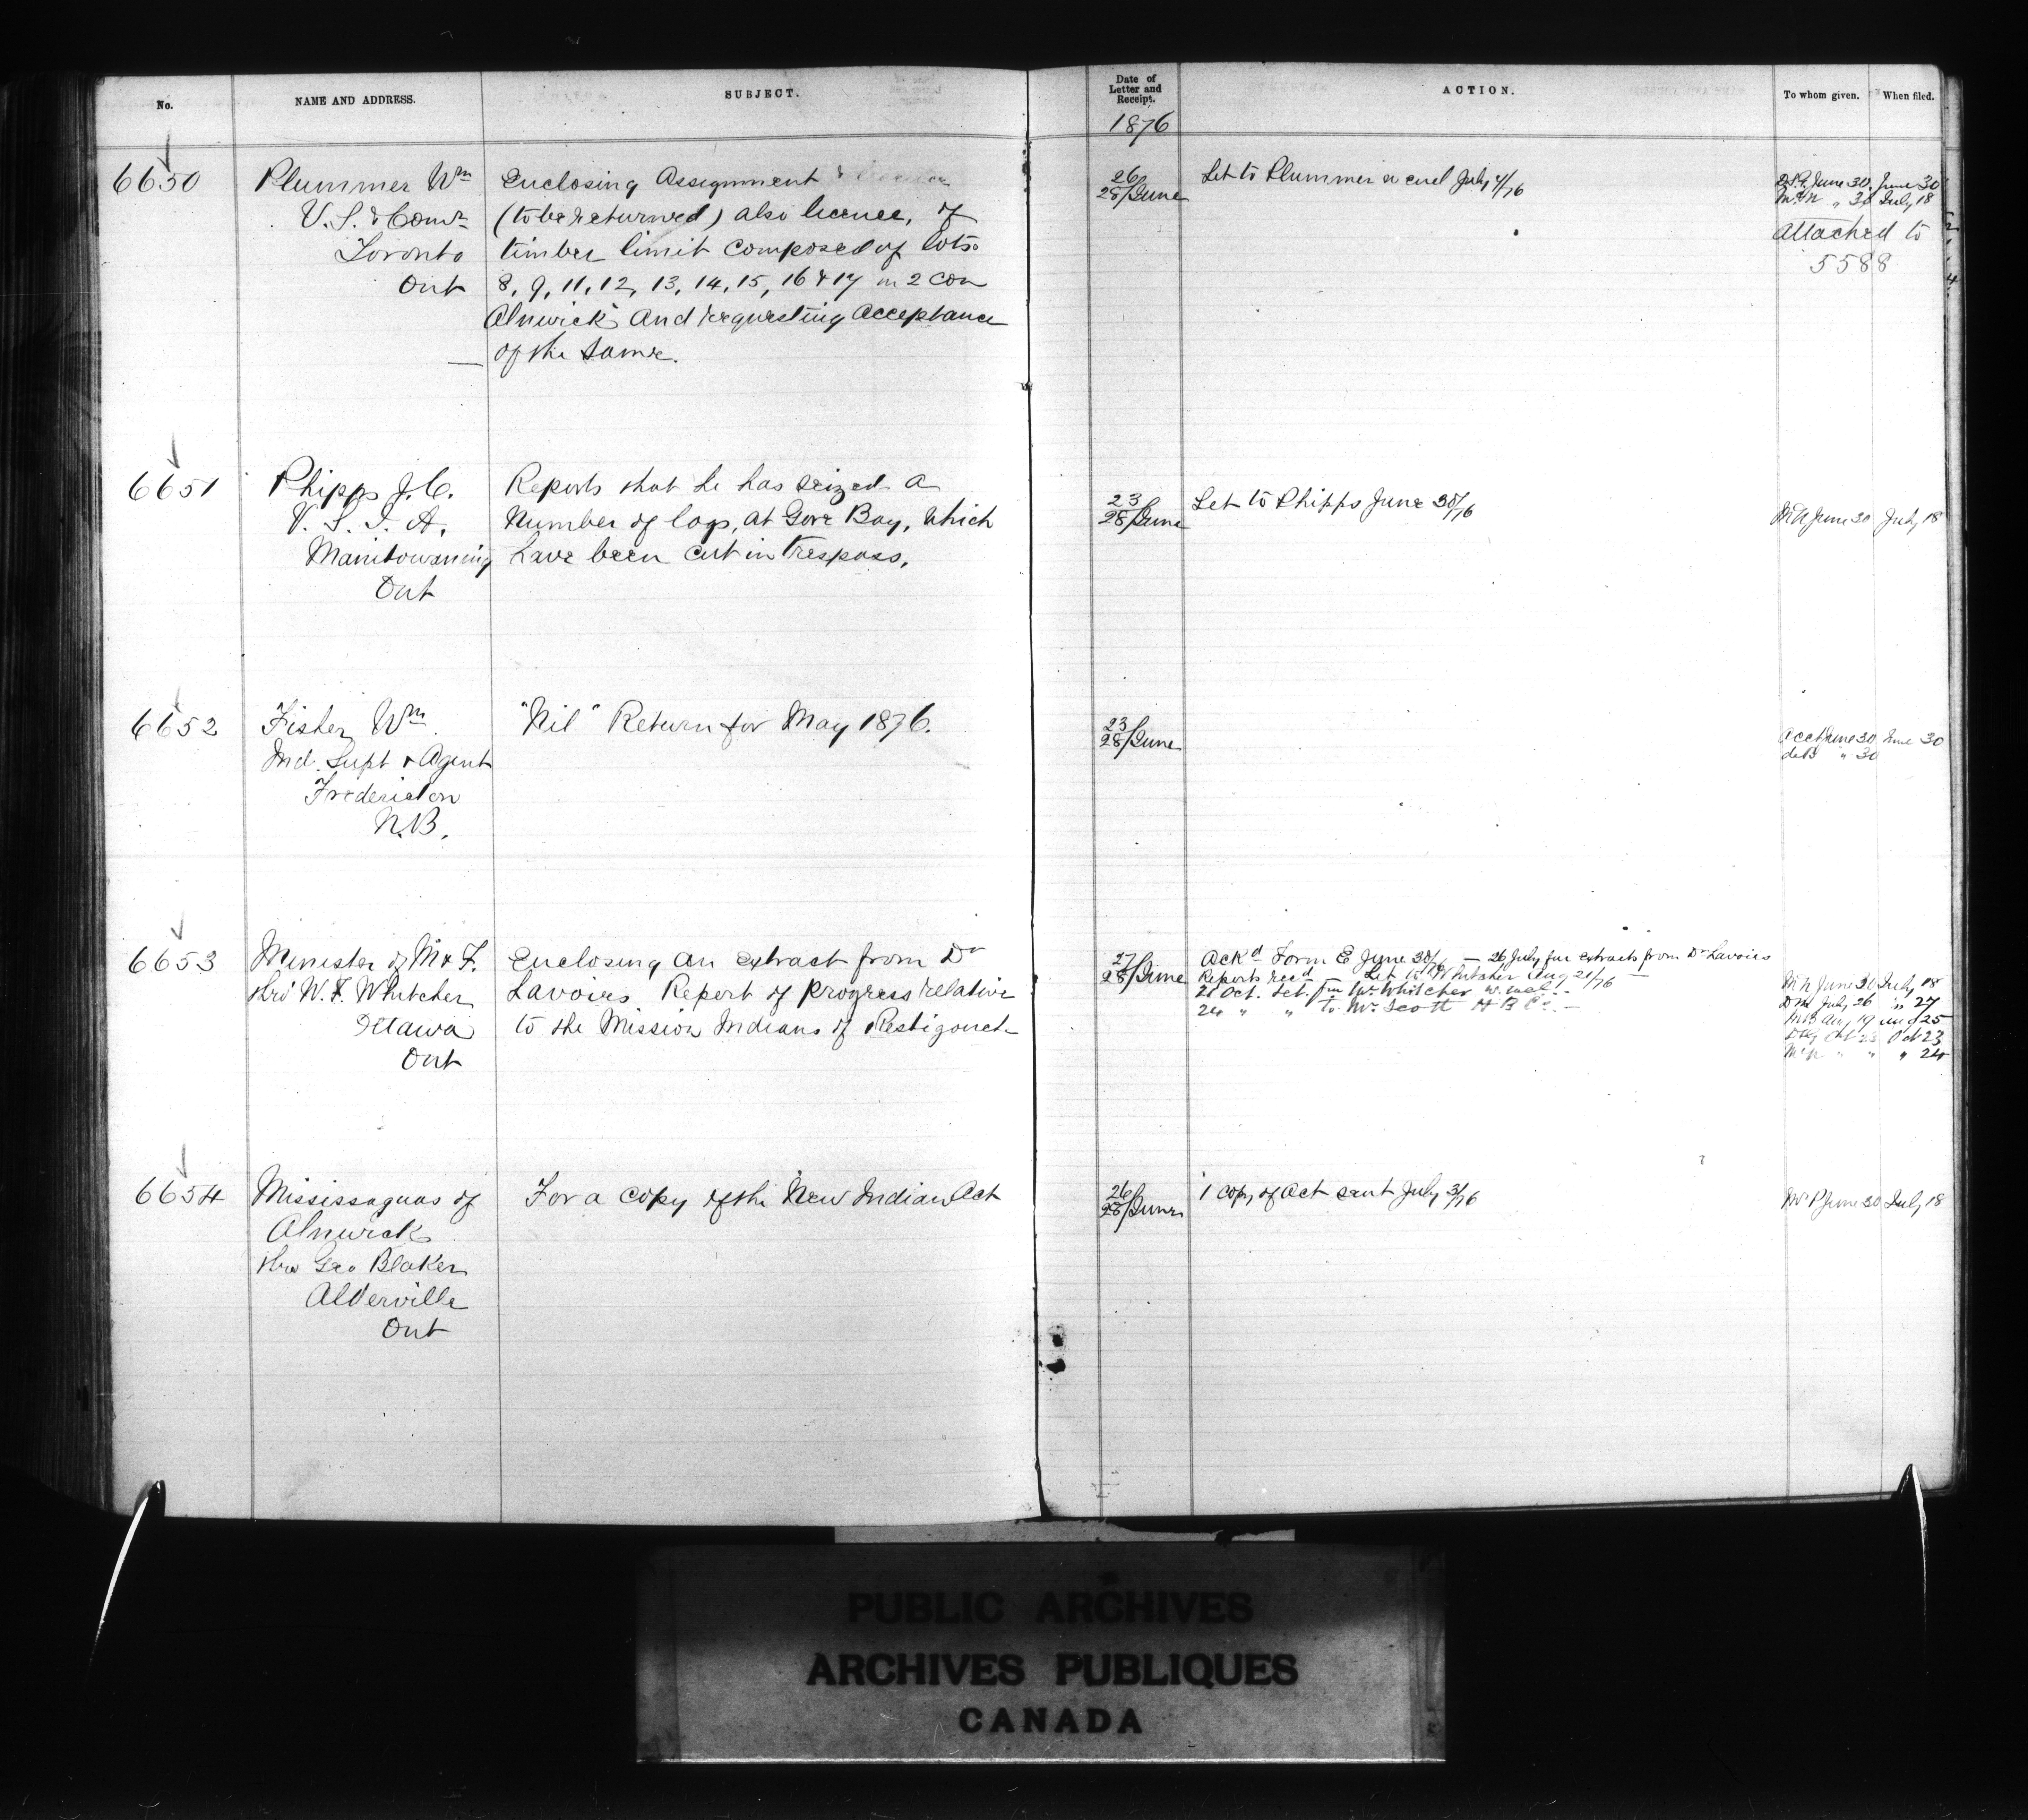 No.
NAME AND ADDRESS.
SUBJECT.
Date of
Letter and
Receipt.
ACTION.
To whom given.
When filed.
1876
6650
Plummer Wm
V. S. & Comr
Toronto
Ont
Enclosing Assignment &
(to be returned) also licence, of
timber limit composed of lots
8, 9, 11, 12, 13, 14, 15, 16 & 17 in 2 con
Alnwick and requesting acceptance
of the same.
26
28/June
Let to Plummer w encl July 4/76
June 30 June 30
" 30 July 18
attached to
5588
6651
Phipps J. C.
V. S. I. A.
Manitowaning
Ont
Reports that he has seized a
number of logs, at Gore Bay, which
have been cut in trespass.
23
28/June
Let to Phipps June 30/76
June 30 July 18
6652
Fisher Wm
Ind. Supt & Agent
Fredericton
N.B.
"Nil" Return for May 1876.
23
28/June
Acct June 30 June 30
deB " 30
6653
Minister of M & F.
thro' W. F. Whitcher
Ottawa
Ont
Enclosing an extract from Dr
Lavoies Report of progress relative
to the Mission Indians of Restigouche
27
28/June
Ackd Form E June 30/76 — 26 July for extracts from Dr Lavoies
Reports recd — Let to Whitcher Aug 21/76 —
21 Oct. Let. fm Mr Whitcher w. encl. —
24 " " to Mr Scott H B Co —
June 30 July 18
July 26 " 27
Aug 19 Aug 25
Oct 23 Oct 23
" " " 24
6654
Mississaguas of
Alnwick
thro Geo Blaker
Alderville
Ont
For a copy of the New Indian Act
26
28/June
1 copy of Act sent July 3/76
June 30 July 18
PUBLIC ARCHIVES
ARCHIVES PUBLIQUES
CANADA